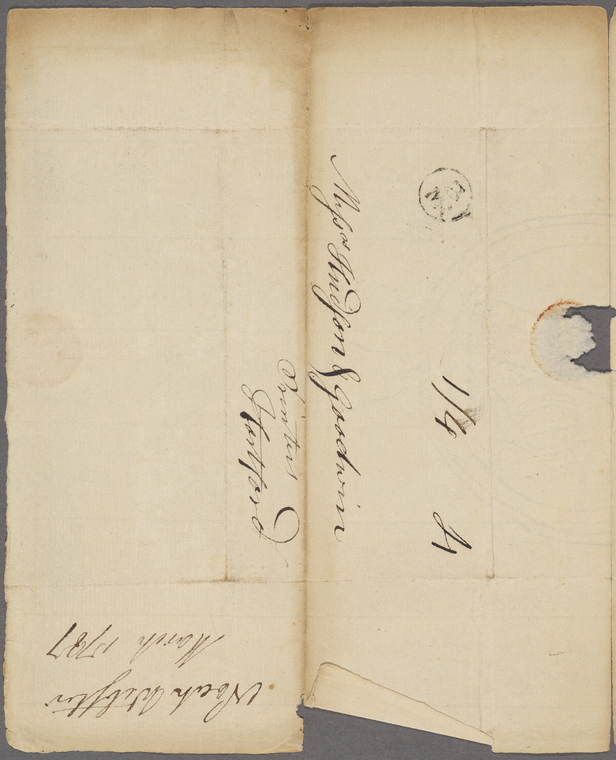 Messrs Hudson & Goodwin
Printers
Hartford
1/4
Noah Webster
March 1787